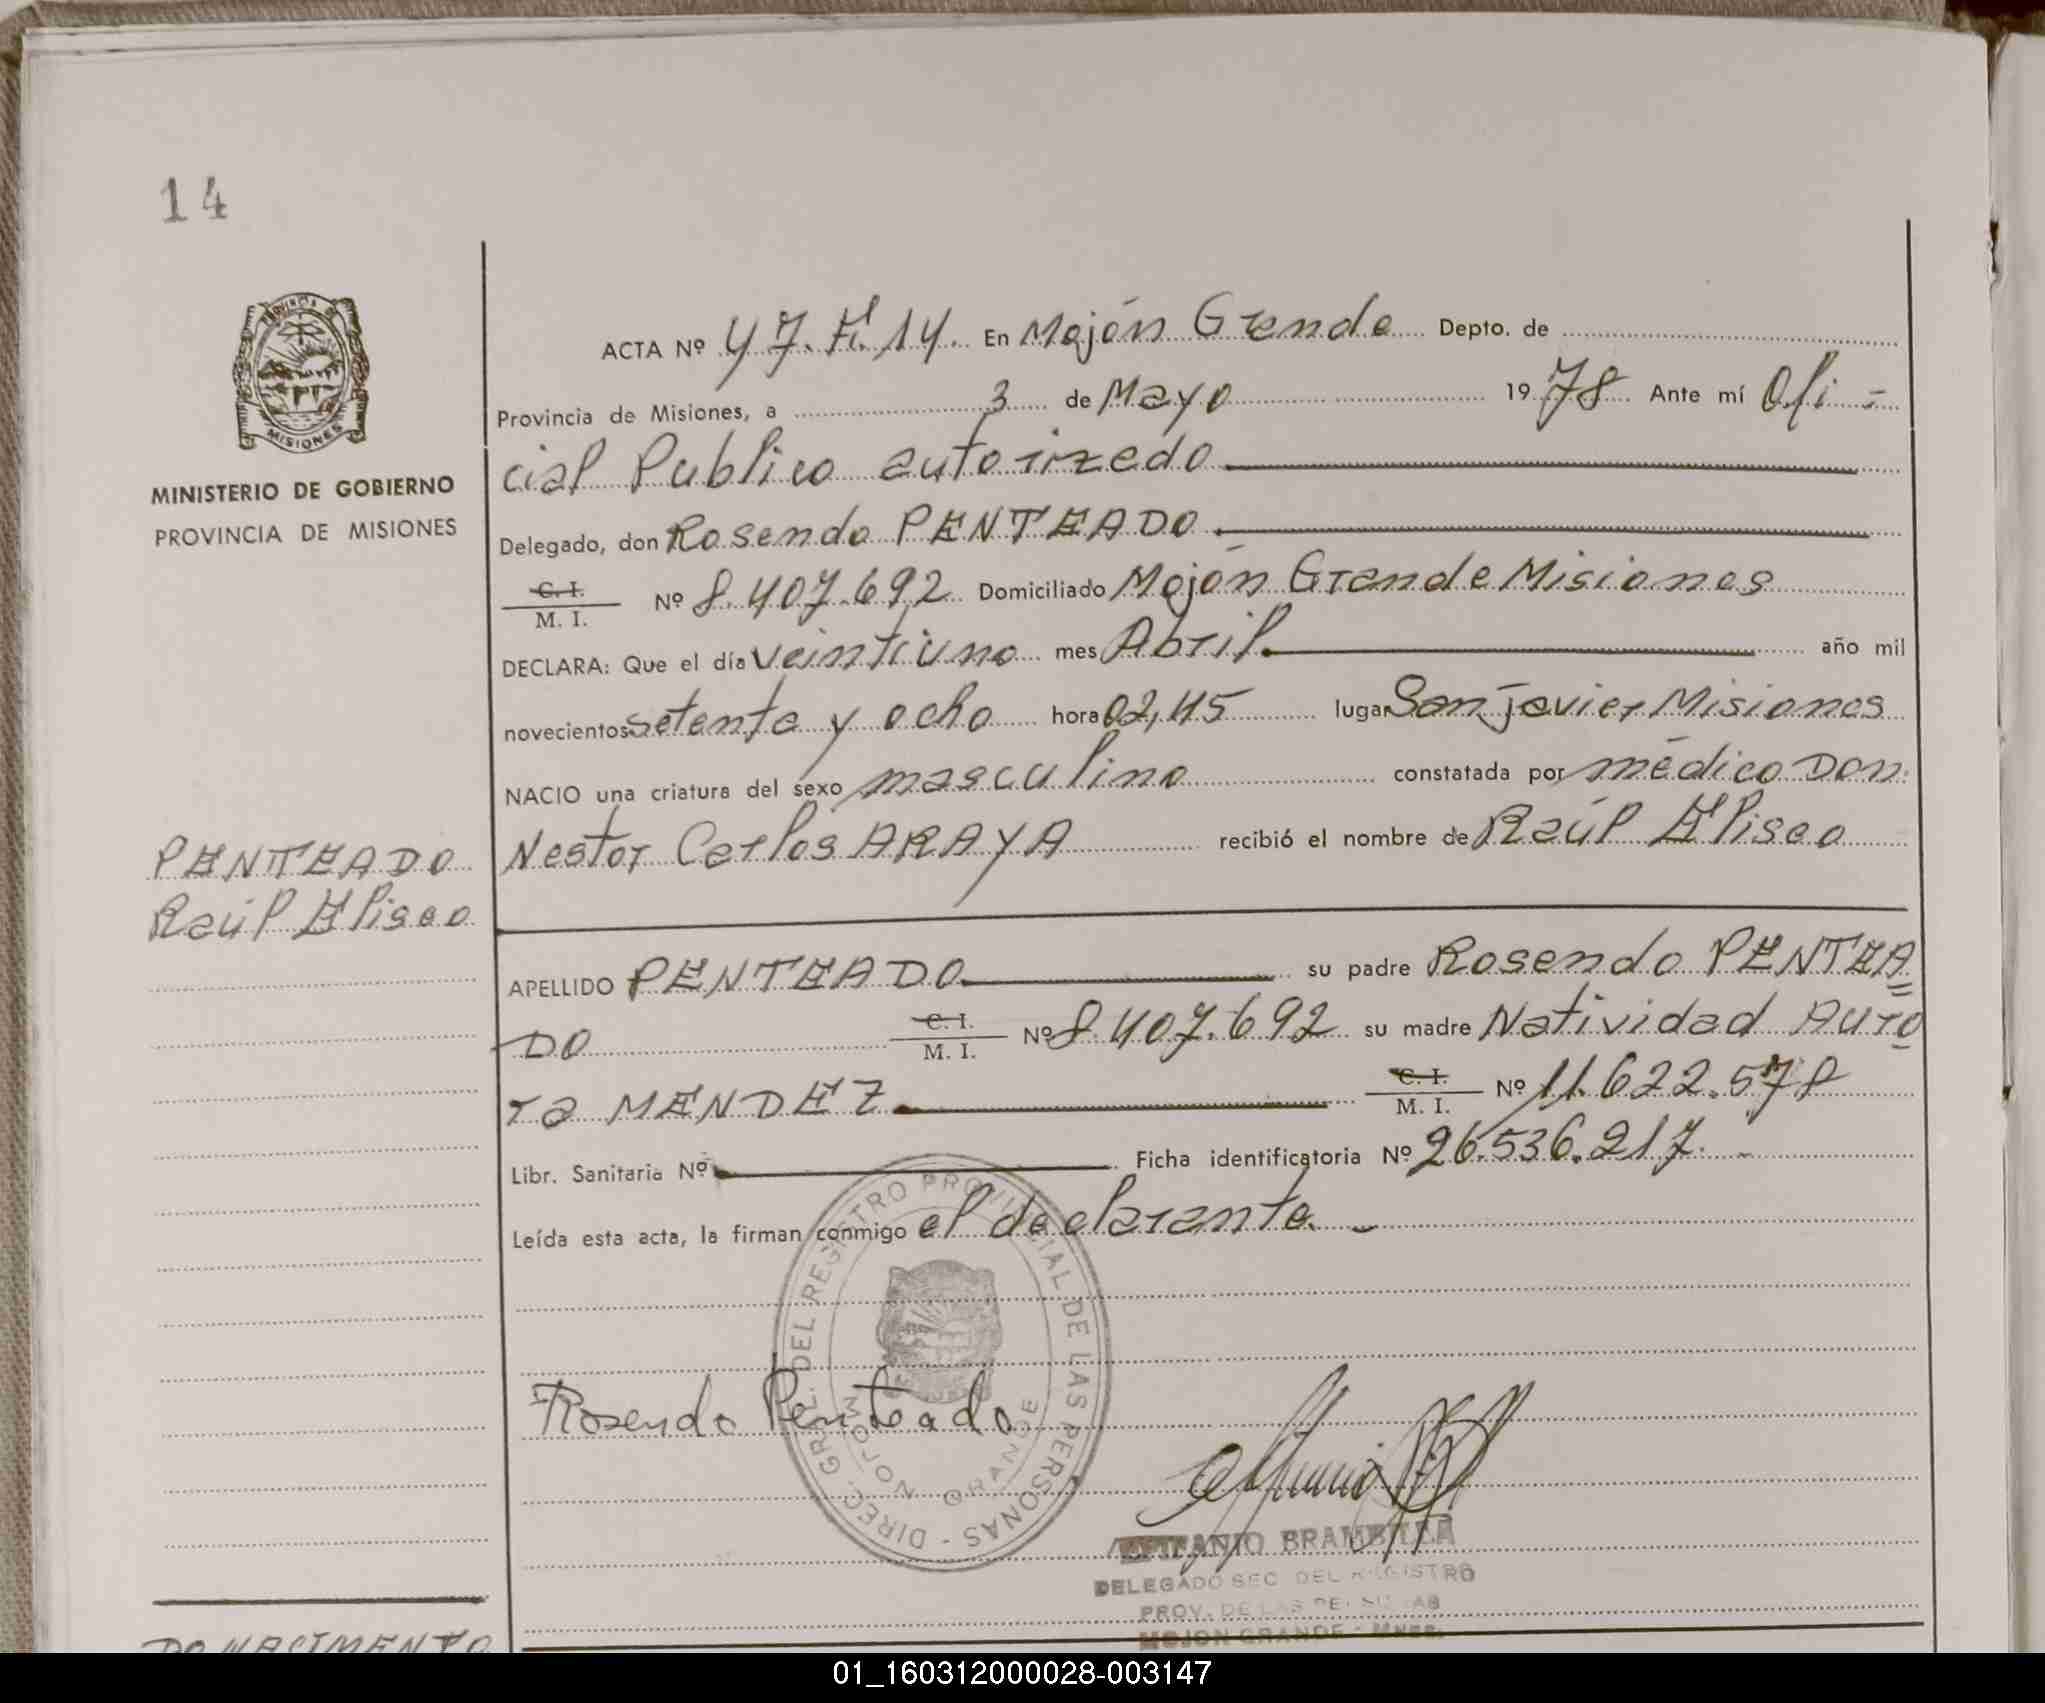 14
PROVINCIA DE
MISIONES
MINISTERIO DE GOBIERNO
PROVINCIA DE MISIONES
PENTEADO
Raúl Eliseo
ACTA Nº 47.Fº.14. En Mojón Grande Depto. de
Provincia de Misiones, a 3 de Mayo 1978 Ante mí Ofi-
cial Publico autorizado
Delegado, don Rosendo PENTEADO
C. I.
M. I. Nº 8.407.692 Domiciliado Mojón Grande Misiones
DECLARA: Que el día veintiuno mes Abril. año mil
novecientos setenta y ocho hora 02,45 lugar San javier Misiones
NACIO una criatura del sexo masculino constatada por médico Don.
Nestor Carlos ARAYA recibió el nombre de Raúl Eliseo
APELLIDO PENTEADO su padre Rosendo PENTEA=
DO C. I.
M. I. Nº 8.407.692 su madre Natividad Auro-
ra MENDEZ C. I.
M. I. Nº 11.622.578
Libr. Sanitaria Nº Ficha identificatoria Nº 26.536.217.-
Leída esta acta, la firman conmigo el declarante.-
DIREC. GRAL. DEL REGISTRO PROVINCIAL DE LAS PERSONAS -
MOJON GRANDE
Rosendo Penteado
EPIFANIO BRAMBILLA
DELEGADO SEC. DEL REGISTRO
PROV. DE LAS PERSONAS
MOJON GRANDE - Mnes.
DO NACIMENTO
01_160312000028-003147